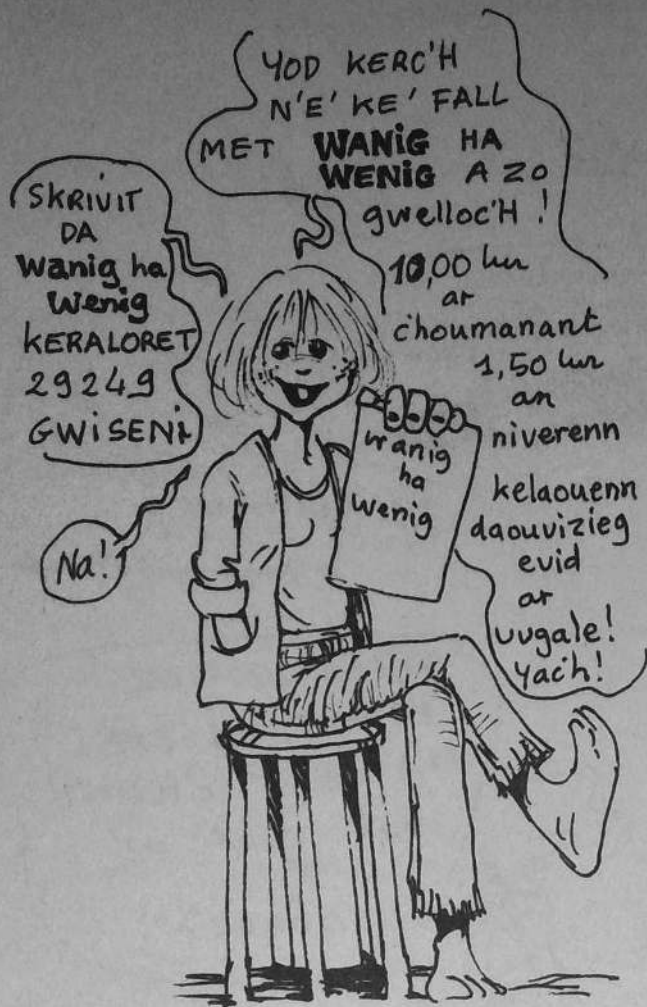 YOD KERC'H
N'E' KE' FALL
MET WANiG HA
WENiG A ZO
gwelloc'H !
10,00 lur
ar
c'houmanant
1,50 lur
an
niverenn
kelaouenn
daouvizieg
evid
ar
vugale!
Yac'h!
SKRiViT
DA
Wanig ha
Wenig
KERALORET
29249
GWiSENi
Na!
wanig
ha
wenig